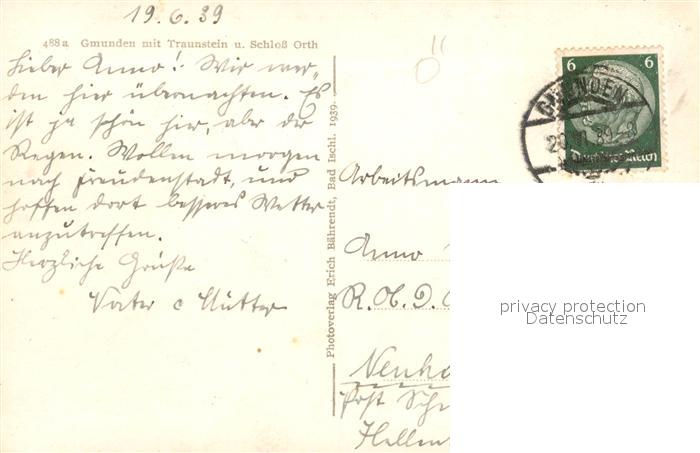 19.6.39
488a Gmunden mit Traunstein u. Schloß Orth
Lieber Anno! Wir wer-
den hier übernachten. Es
ist ja schön hier, aber der
Regen. Wollen morgen
nach Freudenstadt, und
hoffen dort besseres Wetter
anzutreffen.
Herzliche Grüße
Vater & Mutter
Photoverlag Erich Bährendt, Bad Ischl. 1939.
6 6
Deutsches Reich
GMUNDEN
Arbeitsmann
Anno
R.A.D.
Post
privacy protection
Datenschutz